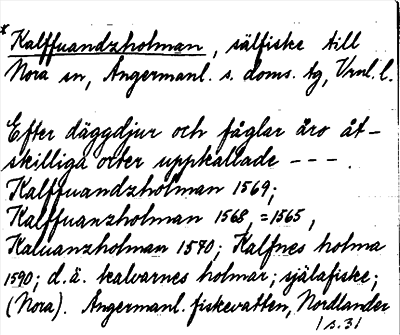 * Kalffuandzholman, sälfiske till
Nora sn, Ångermanl. s. doms. tg, Vrnl. l.
Efter däggdjur och fåglar äro åt-
skilliga orter uppkallade - - - .
Kalffuandzholman 1569;
Kalffuanzholman 1568, = 1565,
Kaluanzholman 1570; Kalfnes holma
1590; d.ä. kalvarnes holmar; själafiske;
(Nora). Ångermanl. fiskevatten, Nordlander
s. 31